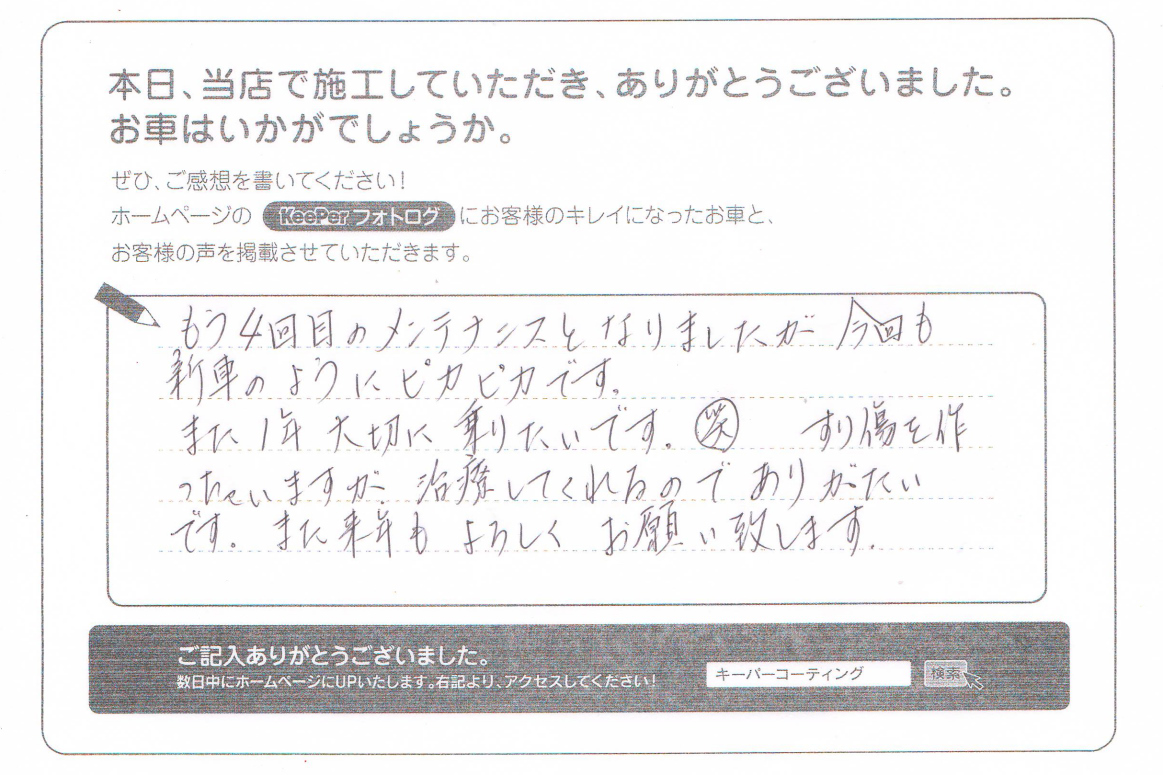 本日、当店で施工していただき、ありがとうございました。
お車はいかがでしょうか。
ぜひ、ご感想を書いてください!
ホームページの KeePer フォトログ にお客様のキレイになったお車と、
お客様の声を掲載させていただきます。
もう4回目のメンテナンスとなりましたが 今回も
新車のようにピカピカです。
また1年 大切に 乗りたいです。㊗ すり傷を作
っちゃいますが、治療してくれるので ありがたい
です。また来年も よろしく お願い致します。
ご記入ありがとうございました。
数日中にホームページにUPいたします。右記より、アクセスしてください!
キーパーコーティング 検索